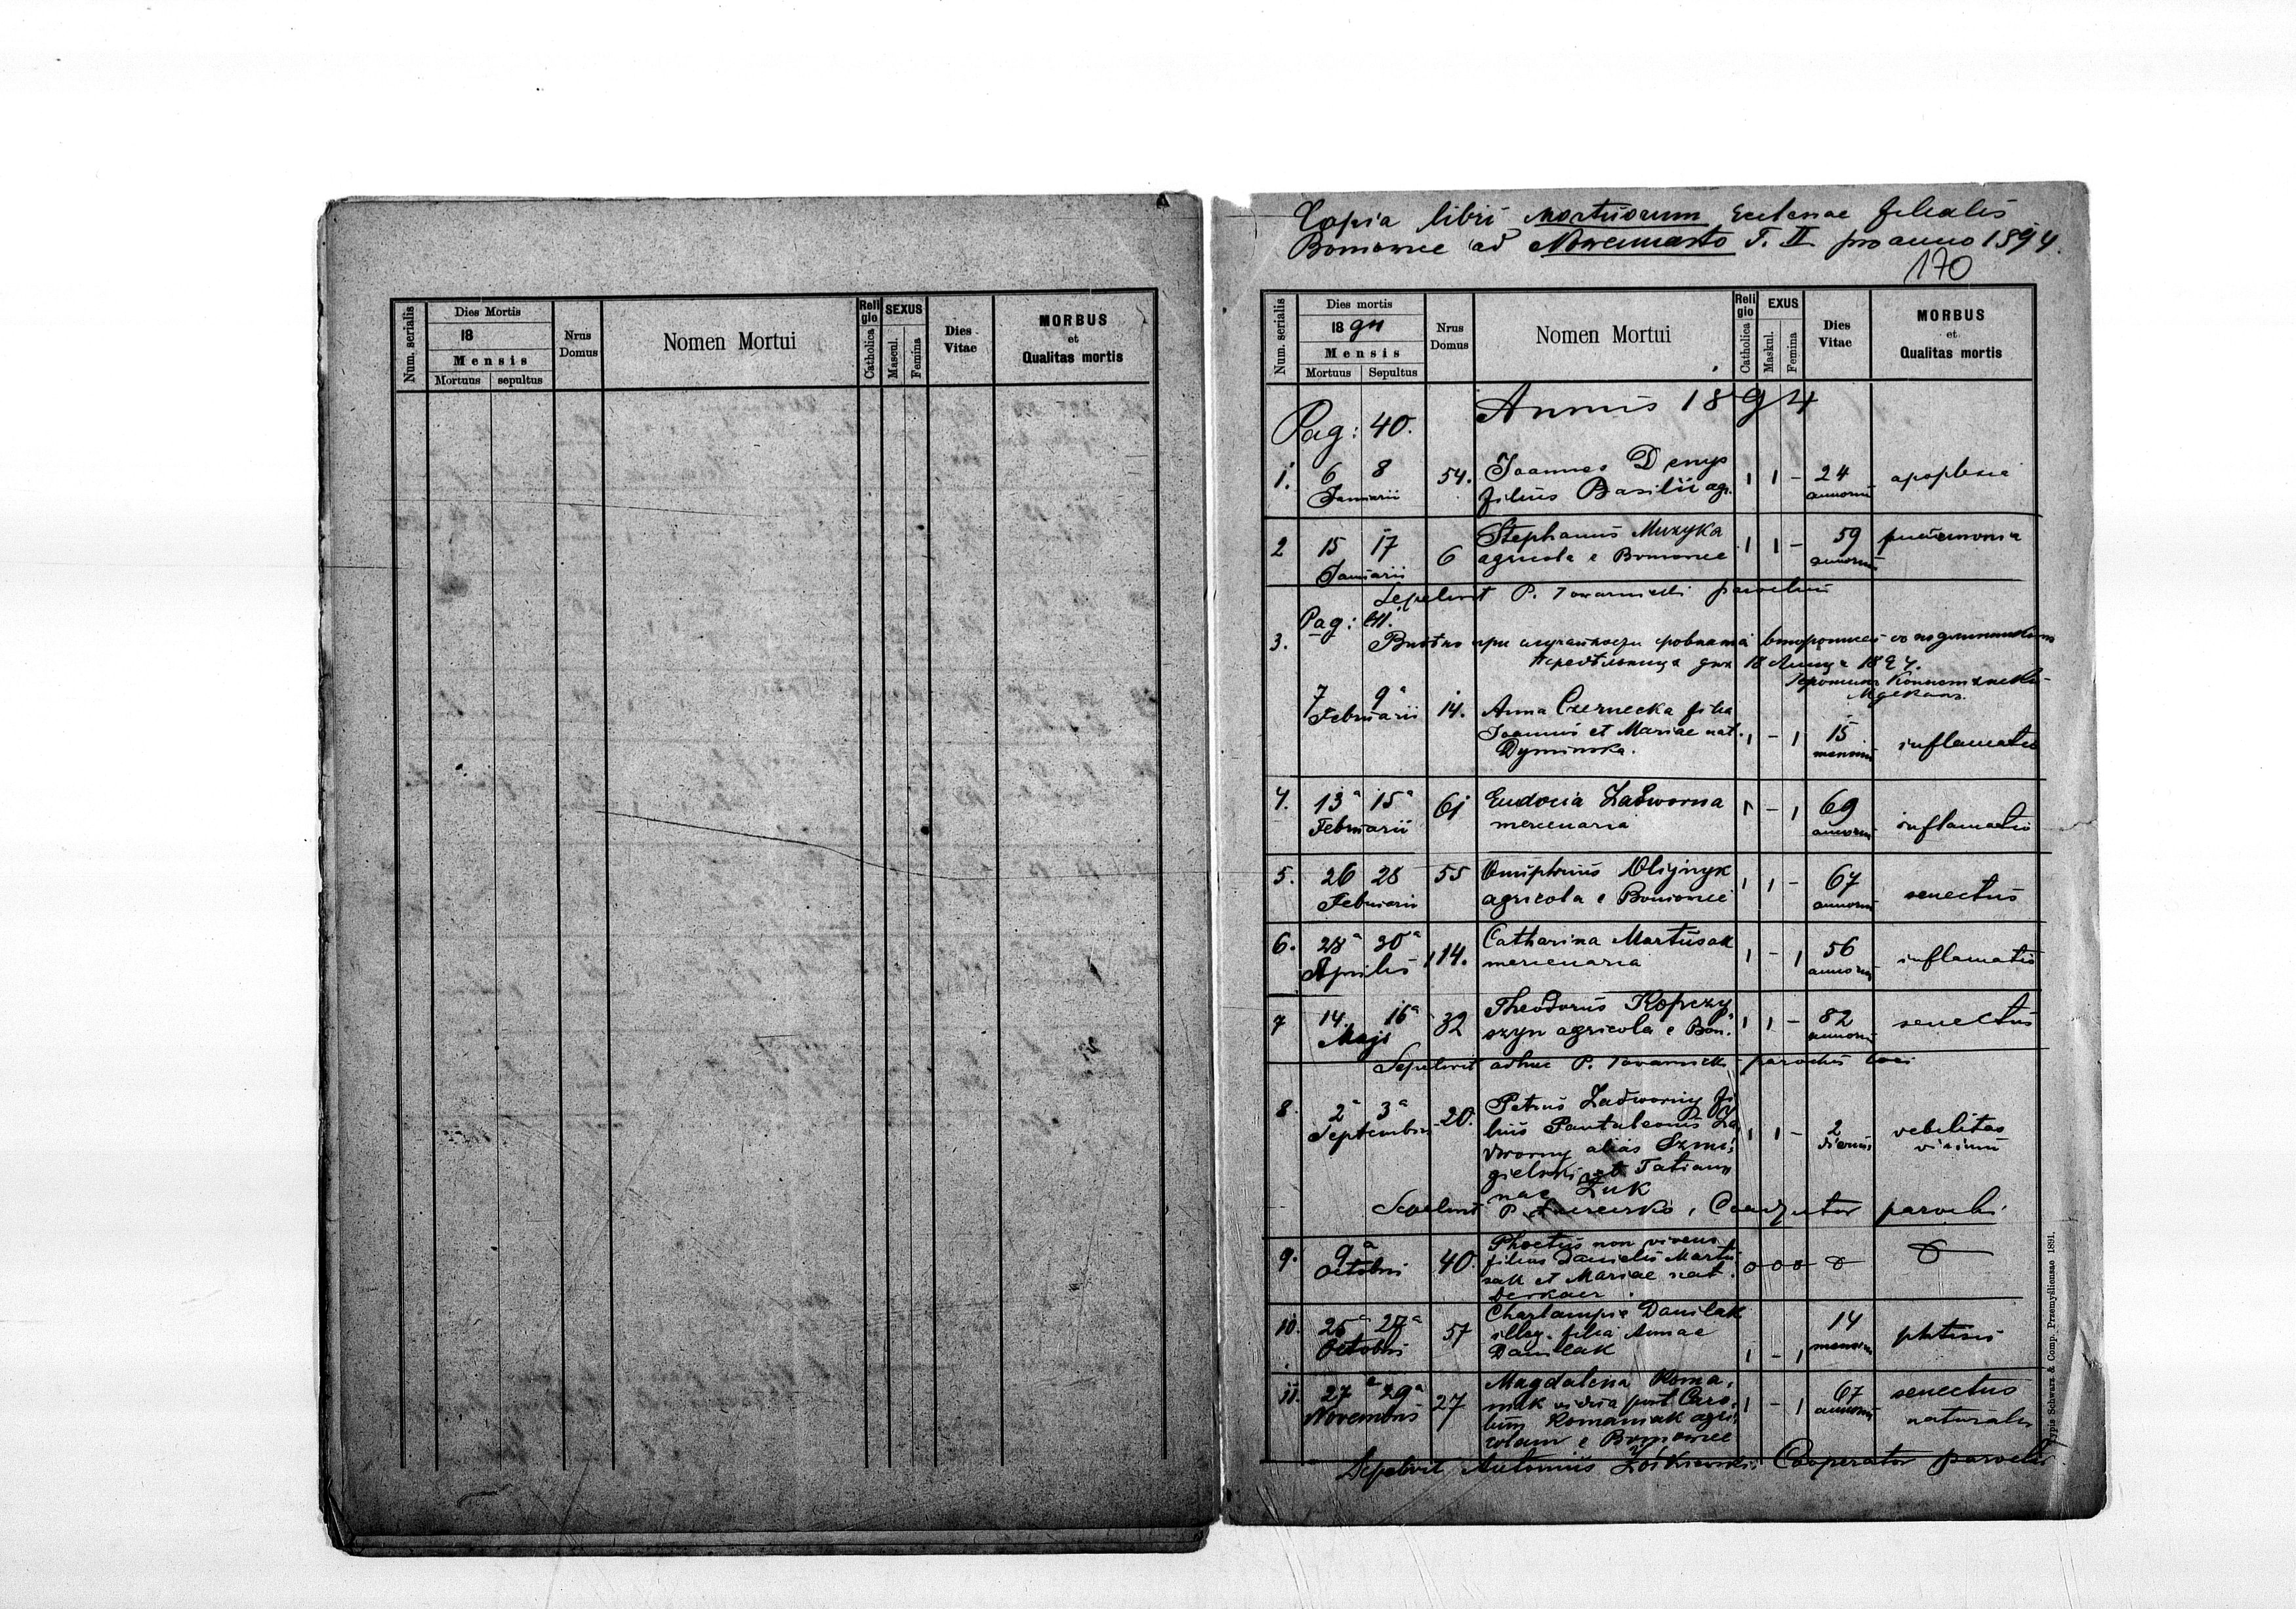 Num. serialis
Dies Mortis
18
Mensis
Mortuus sepultus
Nrus
Domus
Nomen Mortui
Reli
gio
Catholica
SEXUS
Mascul.
Femina
Dies
Vitae
MORBUS
et
Qualitas mortis
Copia libri Mortuorum filialis
ad T. II pro anno 1894.
170
Num. serialis
Dies mortis
18 94
Mensis
Mortuus Sepultus
Nrus
Domus
Nomen Mortui
Reli
gio
Catholica
EXUS
Maskul.
Femina
Dies
Vitae
MORBUS
et
Qualitas mortis
Annus 1894
Pag: 40.
1. 6 8 54. Joannes Denys 1 1 - 24 apoplexia
Januarii filius Basilii agr. annorum
2 15 17 6 Stephanus Muzyka 1 1 - 59
Januarii agricola e Boniowce annorum
Sepelivit P. Towarnicki parochus
Pag: 41.
3.
18 1894.
7 9a 14. Anna Czernecka filia
Februarii Joannis et Mariae nat. 1 - 1 15 inflamatio
Dyminska. mensium
4. 13a 15a 61 Eudocia Zadworna 1 - 1 69 inflamatio
Februarii mercenaria annorum
5. 26 28 55 Onuphrius Olijnyk 1 1 - 67 senectus
Februarii agricola e Boniowce annorum
6. 28a 30a 114. Catharina Martusak 1 - 1 56 inflamatio
Aprilis mercenaria annorum
7 14. 16a 32 Theodorus Kopczy 1 1 - 82 senectus
Maji szyn agricola e Bon. annorum
Sepelivit adhuc P. Towarnicki parochus loci
8. 2a 3a 20. Petrus Zadworny fi
Septembris lius Pantaleonis Za 1 1 - 2 debilitas
dworny alias Szmi dierum virium
gielski et Tatian
nae Żuk
Sepelivit P. Coadjutor parochi
9. 9a 40. Phoetus non vivens
Octobris filius Danielis Martu o o o
sak et Mariae nat.
Derkacz.
10. 25a 27a 57 Charlampia Danilak 14 phtisis
Octobris illeg. filia Annae mensium
Danilak 1 - 1
11. 27a 29a 27 Magdalena Roma, 1 - 1 67 senectus
Novembris niak vidua post Caro, annorum naturalis
lum Romaniak agri,
colam e Boniowce
Sepelivit Antonius Cooperator parochi
Typis Schwarz & Comp. Przemyśliensae 1891.